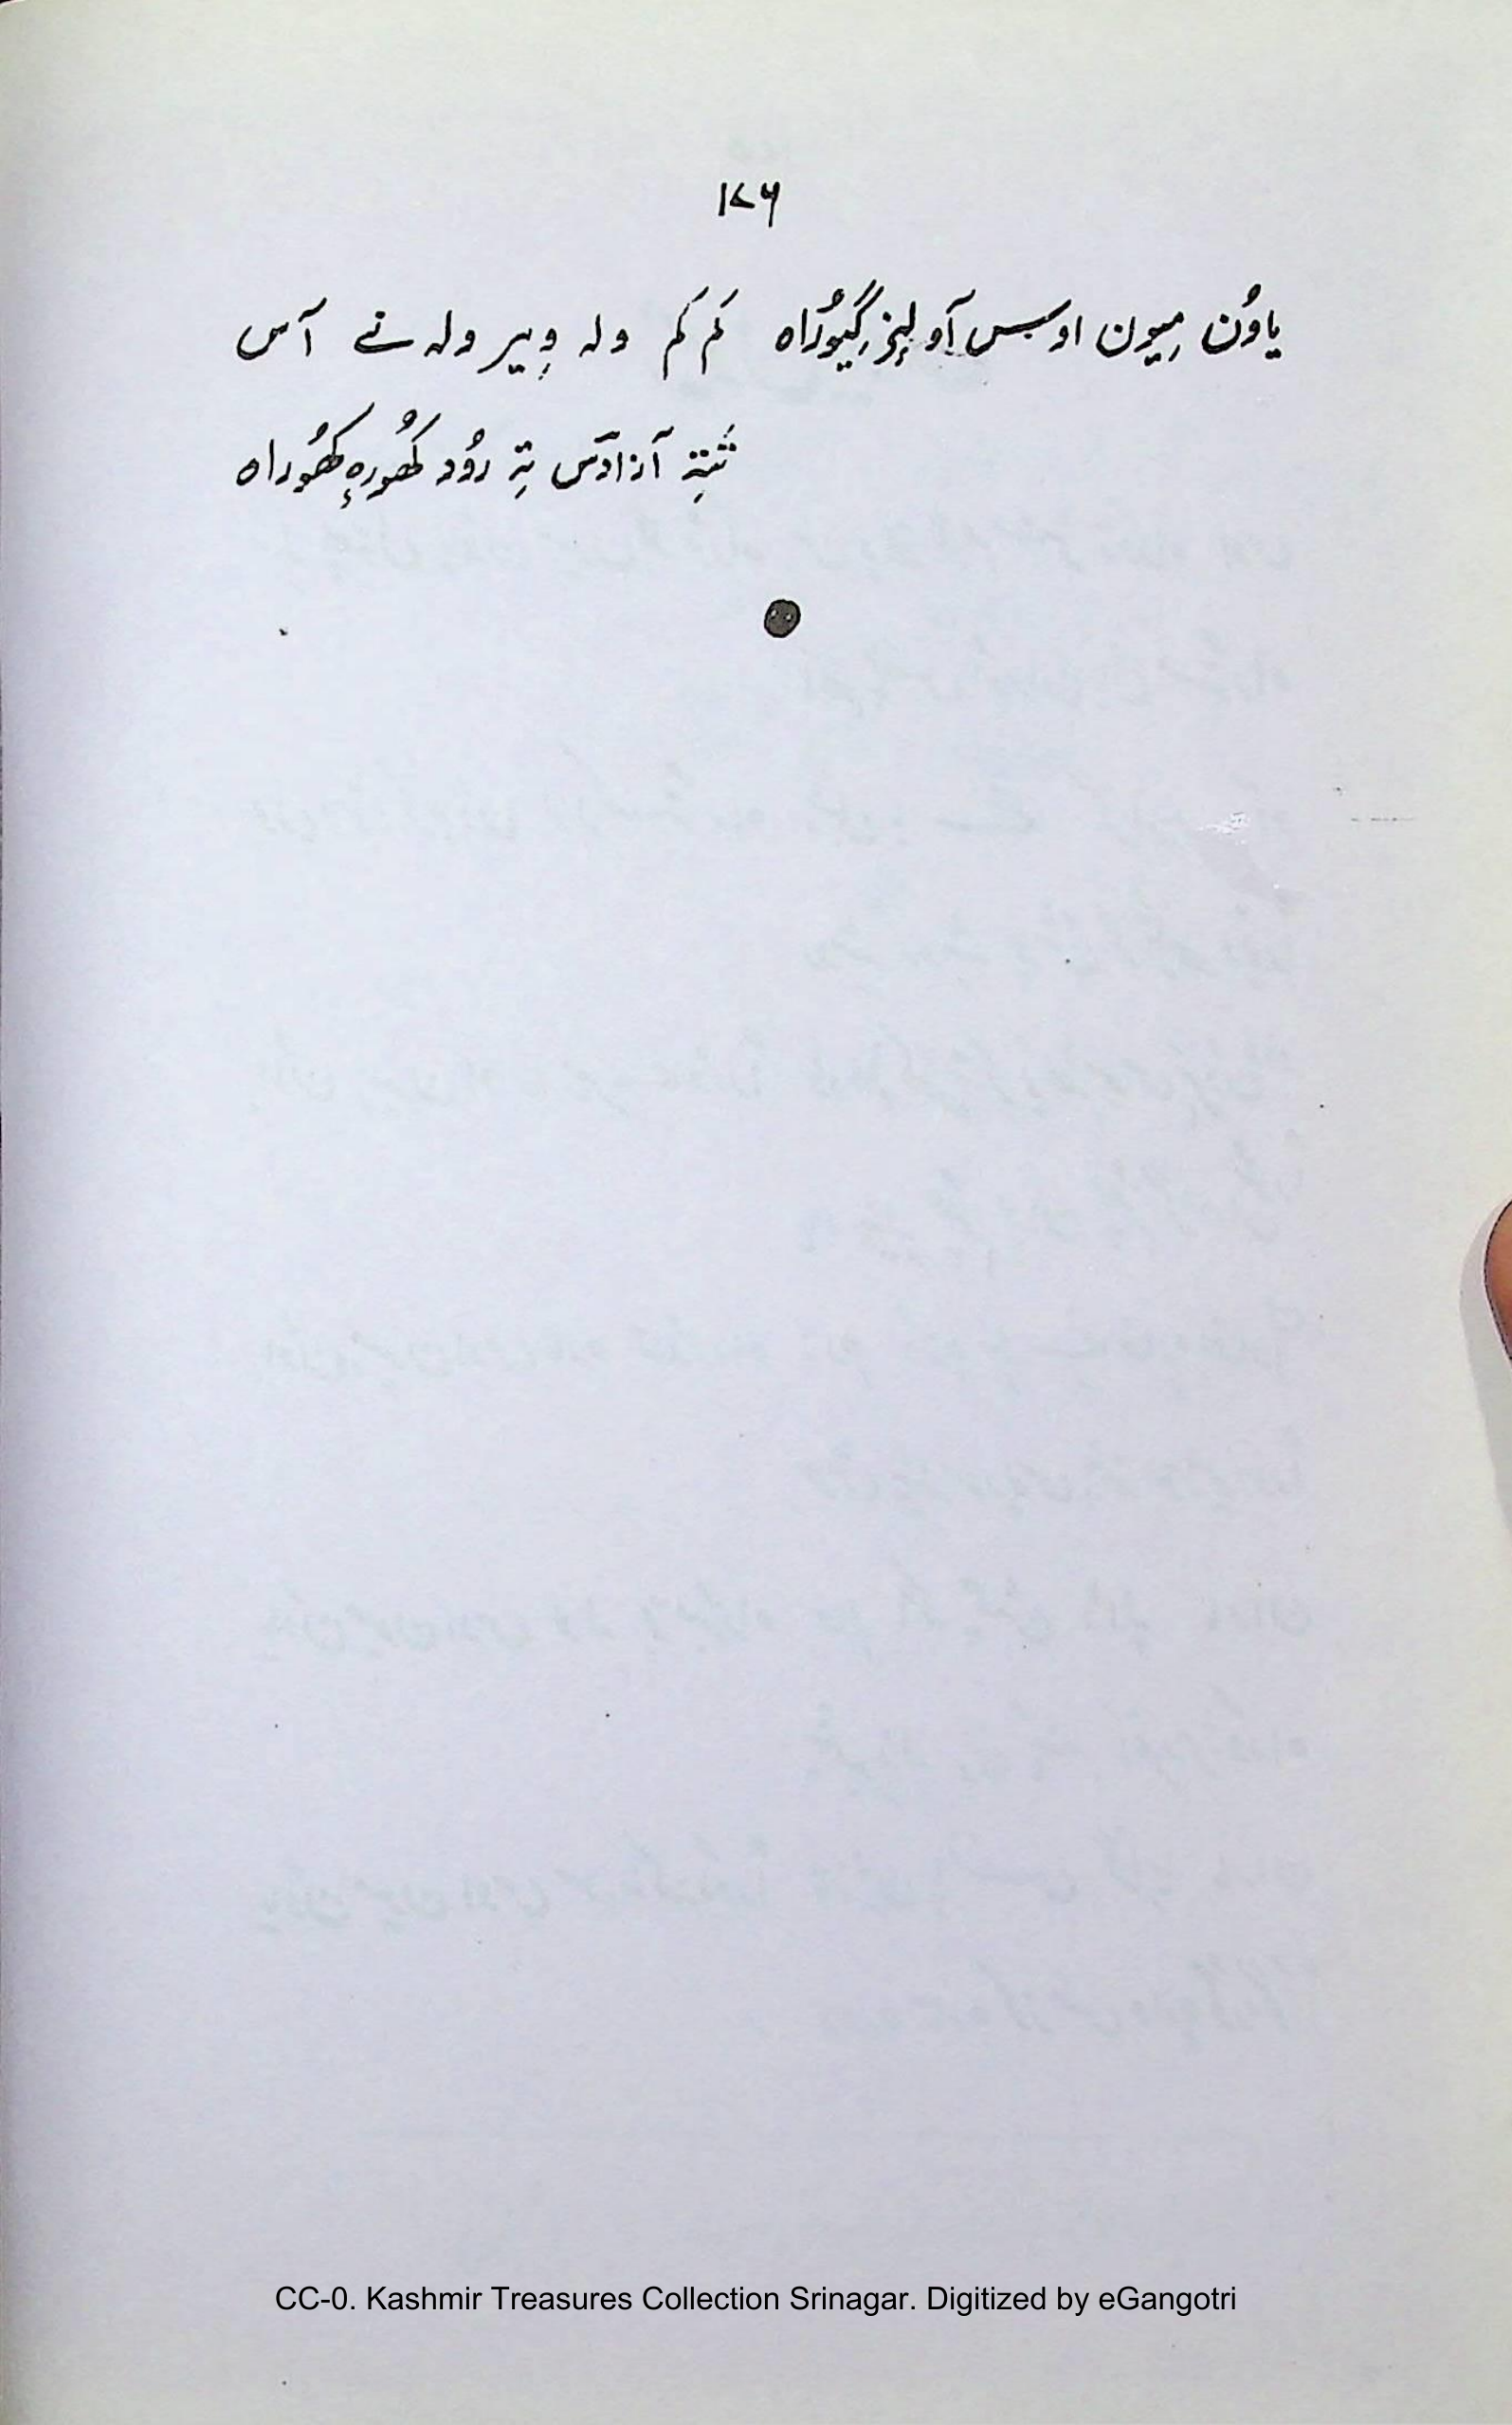 ۱۷۶
یاوُن میون اوسس آو لیٚز گیوٗراہ کَم کَم ولہ وِیر ولہ نے آس
تَتِہ آزادَس تہِ روٗد کھوٗرہٕ کھوٗراہ
CC-0. Kashmir Treasures Collection Srinagar. Digitized by eGangotri